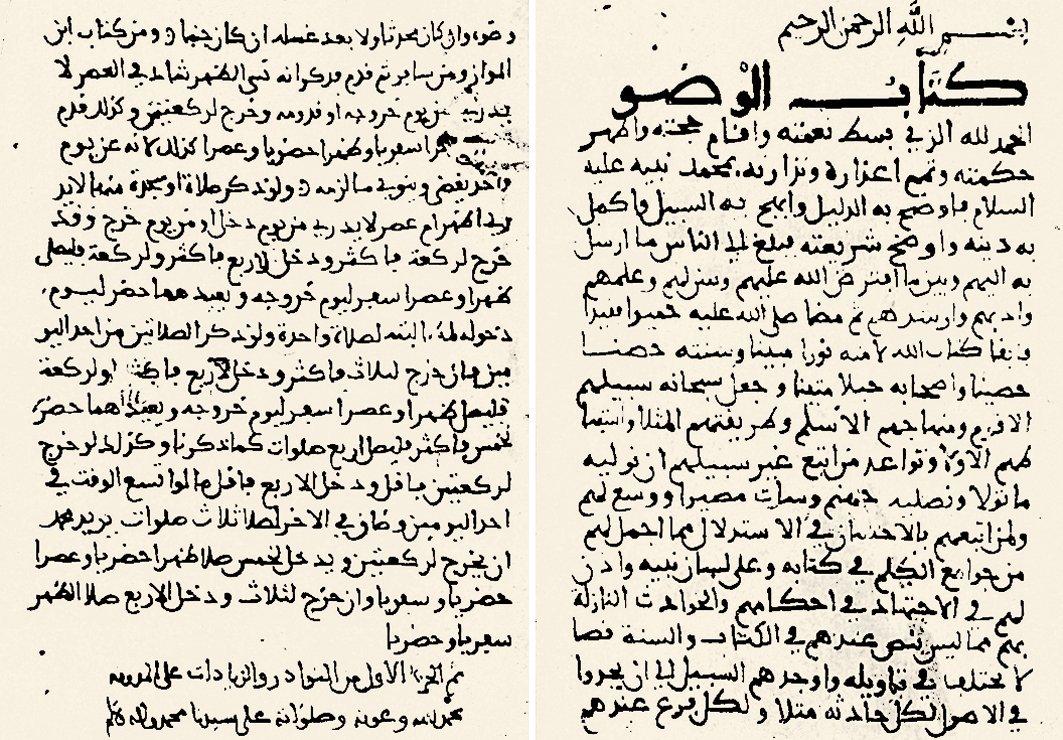 بسم الله الرحمن الرحيم
كتاب الوضو
الحمد لله الذي بسط نعمته واقام حجته واظهر
حكمته وتمم اعذاره ونذارته بمحمد نبيه عليه
السلام فاوضح به الدليل وانهج به السبيل واكمل
به دينه واوضح شريعته فبلغ الى الناس ما ارسل
به اليهم وبين ما افترض الله عليهم وسن لهم وعلمهم
وادبهم وارشدهم ثم مضا صلى الله عليه حميدا فقيدا
وابقا كتاب الله لامته نورا مبينا وسنته حصنا
حصينا واصحابه حبلا متينا وجعل سبحانه سبيلهم
الاقوم ومنهاجهم الاسلم وطريقتهم المثلا
الاولا وتواعد من اتبع غير سبيلهم ان نوليه
ما تولا ونصليه جهنم وساءت مصيرا ووسع لهم
ولمن اتبعهم بالاحسان في الاستدلال مما اجمل لهم
من جوامع الكلم في كتابه وعلى لسان نبيه واذن
لهم في الاجتهاد في احكامهم والحوادث النازلة
بهم مما ليس بنص عندهم في الكتاب والسنة نصا
لا يختلف في تاويله واوجدهم السبيل الى ان يجدوا
في الاصول لكل حادثة مثلا ولكل فرع عندهم
وضوه وان كان محدثا ولا بعد غسله ان كان جنبا ومن كتاب ابن
المواز ومن سافر ثم قدم فذكر انه نسي الظهر شاك في العصر لا
يدري من يوم خروجه او قدومه وخرج لركعتين وكذلك قدم
سفريا وظهرا حضريا وعصرا كذلك لانه عن يوم
واحد يقضي وينوي به ما لزمه ولو ذكر صلاة او سجدة منها لا يدر
من الظهر ام عصر لا يدري من يوم دخل او من يوم خرج وقد
خرج لركعة فاكثر ودخل لاربع فاكثر ولركعة فليصل
ظهرا وعصرا سفر ليوم خروجه ويعيدهما حضر ليوم
دخوله البتة لصلاة واحدة ولو ذكر الصلاتين من احد اليو
مين فان خرج لثلاث فاكثر ودخل لاربع فاكثر او لركعة
فليصل ظهرا وعصرا سفر ليوم خروجه ويعيدهما حضر
لخمس فاكثر فليصل اربع صلوات كما ذكرنا وكذلك لو خرج
لركعتين فاقل ودخل لاربع فاقل مالوا تسع الوقت في
احد اليومين وضاق في الاخر لصلا ثلاث صلوات يريد محمد
ان يخرج لركعتين ويدخل لخمس صلا ظهرا حضريا وعصرا
حضريا وسفريا وان خرج لثلاث ودخل لاربع صلا الظهر
سفريا وحضريا
تم الجزء الاول من النوادر والزيادات على المدونة
بحمد الله وعونه وصلواته على سيدنا محمد واله